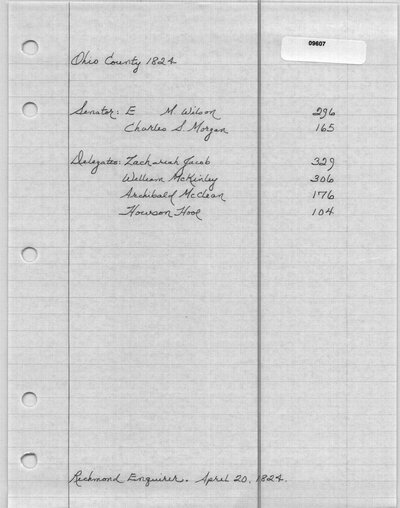 09607
Ohio County 1824
Senator: E M Wilson 296
Charles S Morgan 165
Delegates: Zachariah Jacob 329
William McKinley 306
Archibald McClean 176
Howson Hooe 104
Richmond Enquirer. April 20, 1824.